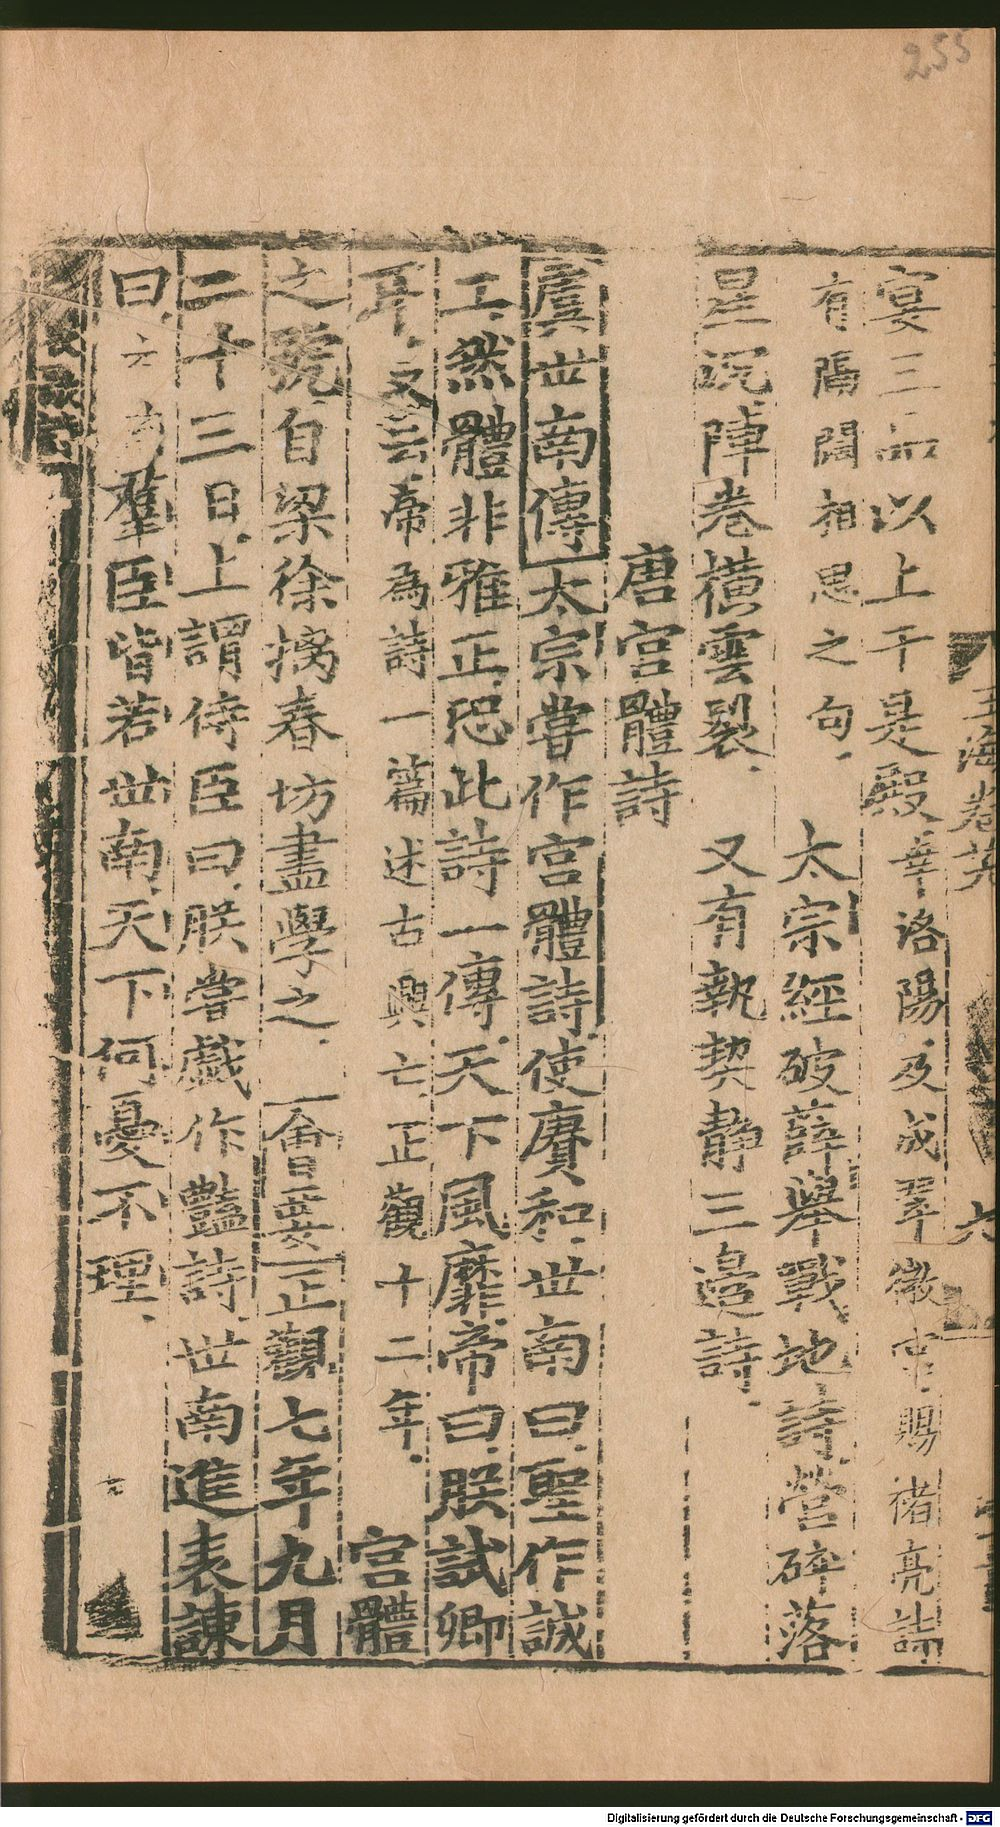 255
玉海卷
六
宴三品以上于是殿幸洛陽及成翠微宮賜褚亮詩
有隔闊相思之句　太宗經破薛舉戰地詩營碎落
星沉陣卷橫雲裂　又有執契靜三邊詩
唐宮體詩
虞世南傳太宗嘗作宮體詩使賡和世南曰聖作誠
工然體非雅正恐此詩一傳天下風靡帝曰朕試卿
耳又云帝為詩一篇述古興亡正觀十二年　宮體
之號自梁徐摛春坊盡學之會要正觀七年九月
二十三日上謂侍臣曰朕嘗戲作豔詩世南進表諫
曰羣臣皆若世南天下何憂不理
Digitalisierung gefördert durch die Deutsche Forschungsgemeinschaft - DFG